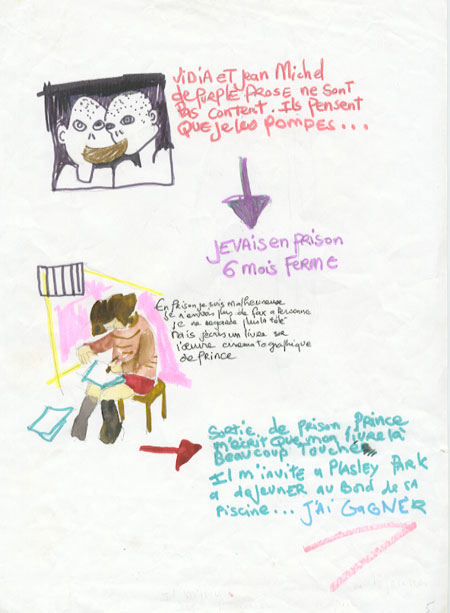 VIDIA ET Jean Michel
de PURPLE PROSE ne sont
pas content. Ils pensent
que je les POMPES...
JE VAIS en prison
6 mois FERME
En prison je suis malheureuse
je n'envoie plus de fax a personne
je ne regarde plus la télé
mais j'écris un livre sur
l'œuvre cinematographique
de PRINCE
Sortie de prison PRINCE
m'écrit que mon livre l'a
BEAUCOUP TOUCHÉ
Il m'invite a PAISLEY PARK
a dejeuner au bord de sa
piscine... J'AI GAGNER